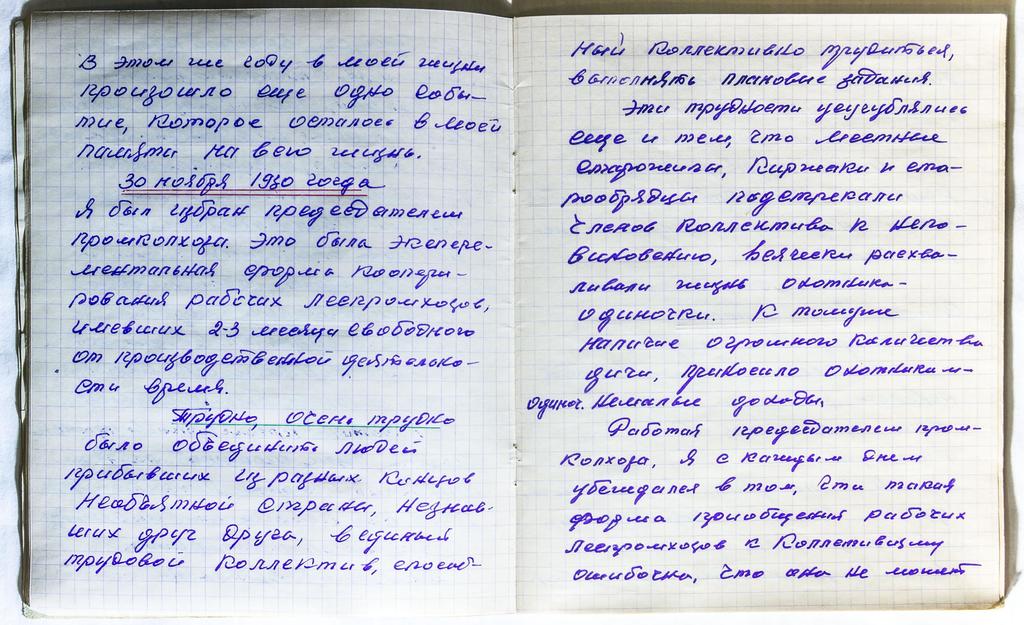 В этом же году в моей жизни
произошло еще одно собы-
тие, которое осталось в моей
памяти на всю жизнь.
30 ноября 1930 года
Я был избран председателем
промколхоза. Это была экспере-
ментальная форма коопери-
рования рабочих леспромхозов,
имевших 2-3 месяца свободного
от производственной деятельно-
сти время.
Трудно, очень трудно
было объединить людей
прибывших из разных концов
необъятной страны, незнав-
ших друг друга, в единый
трудовой коллектив, способ-
ный коллективно трудиться,
выполнять плановые задания.
Эти трудности усугублялись
еще и тем, что местные
старожилы, киржаки и ста-
рообрядцы подстрекали
членов коллектива к непо-
виновению, всячески расхва-
ливали жизнь охотника-
одиночки. К томуже
наличие огромного количества
дичи, приносило охотникам-
одиноч. немалые доходы.
Работая председателем пром-
колхоза, я с каждым днем
убеждался в том, что такая
форма приобщения рабочих
леспромхозов к коллетивизму
ошибочна, что она не может